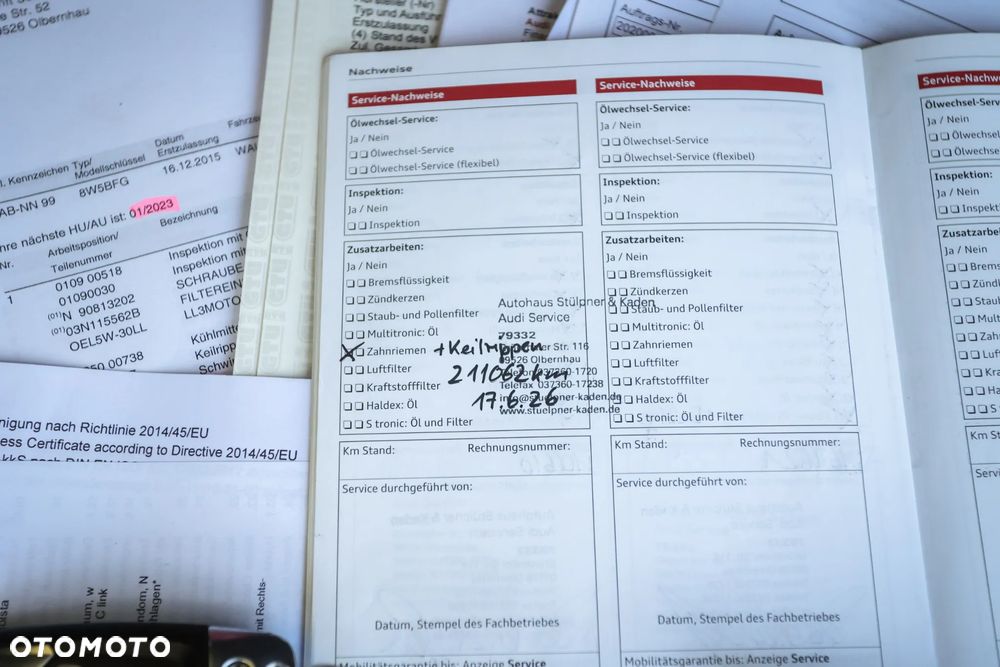 Str. 52
9526 Olbernhau
Kennzeichen
Typ/
Modellschlüssel
Datum
Erstzulassung
AB-NN 99
8W5BFG
16.12.2015
nächste HU/AU ist: 01/2023
Nr.
Arbeitsposition/
Teilenummer
Bezeichnung
1
0109 00518
Inspektion mit
01090030
Inspektion mit
(01)N 90813202
SCHRAUBE
(01)03N115562B
FILTEREIN
OEL5W-30LL
LL3MOTO
850 00738
Kühlmitte
Keilripp
Schwin
nigung nach Richtlinie 2014/45/EU
ess Certificate according to Directive 2014/45/EU
C link
mit Rechts-
Typ und Ausfüh
Erstzulassung
(4) Stand des
Auftrags-Nr.
Nachweise
Service-Nachweise
Ölwechsel-Service:
Ja / Nein
Ölwechsel-Service
Ölwechsel-Service (flexibel)
Inspektion:
Ja / Nein
Inspektion
Zusatzarbeiten:
Ja / Nein
Bremsflüssigkeit
Zündkerzen
Staub- und Pollenfilter
Multitronic: Öl
Zahnriemen + Keilrippen
Luftfilter
Kraftstofffilter
Haldex: Öl
S tronic: Öl und Filter
211062 km
17.6.26
Autohaus Stülpner & Kaden
Audi Service
79332
Str. 116
09526 Olbernhau
Telefon 037360-1720
Telefax 037360-17238
info@stuelpner-kaden.de
www.stuelpner-kaden.de
Km Stand:
Rechnungsnummer:
Service durchgeführt von:
Datum, Stempel des Fachbetriebes
Mobilitätsgarantie bis: Anzeige Service
Service-Nachweise
Ölwechsel-Service:
Ja / Nein
Ölwechsel-Service
Ölwechsel-Service (flexibel)
Inspektion:
Ja / Nein
Inspektion
Zusatzarbeiten:
Ja / Nein
Bremsflüssigkeit
Zündkerzen
Staub- und Pollenfilter
Multitronic: Öl
Zahnriemen
Luftfilter
Kraftstofffilter
Haldex: Öl
S tronic: Öl und Filter
Km Stand:
Rechnungsnummer:
Service durchgeführt von:
Datum, Stempel des Fachbetriebes
Mobilitätsgarantie bis: Anzeige Service
Service-Nachw
Ölwechsel-Serv
Ja / Nein
Ölwechse
Ölwechs
Inspektion:
Ja / Nein
Inspekt
Zusatzarbe
Ja / Nein
Brem
Zünd
Stau
Mul
Zah
Luf
Kra
Ha
S t
Km Stan
Servic
OTOMOTO